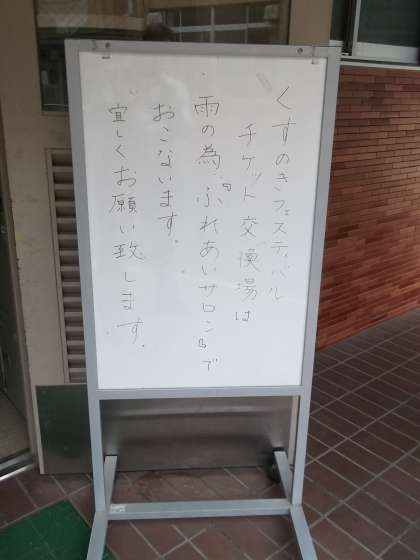 くすのきフェスティバル
チケット交換場は
雨の為、『ふれあいサロン』で
おこないます。
宜しくお願い致します。